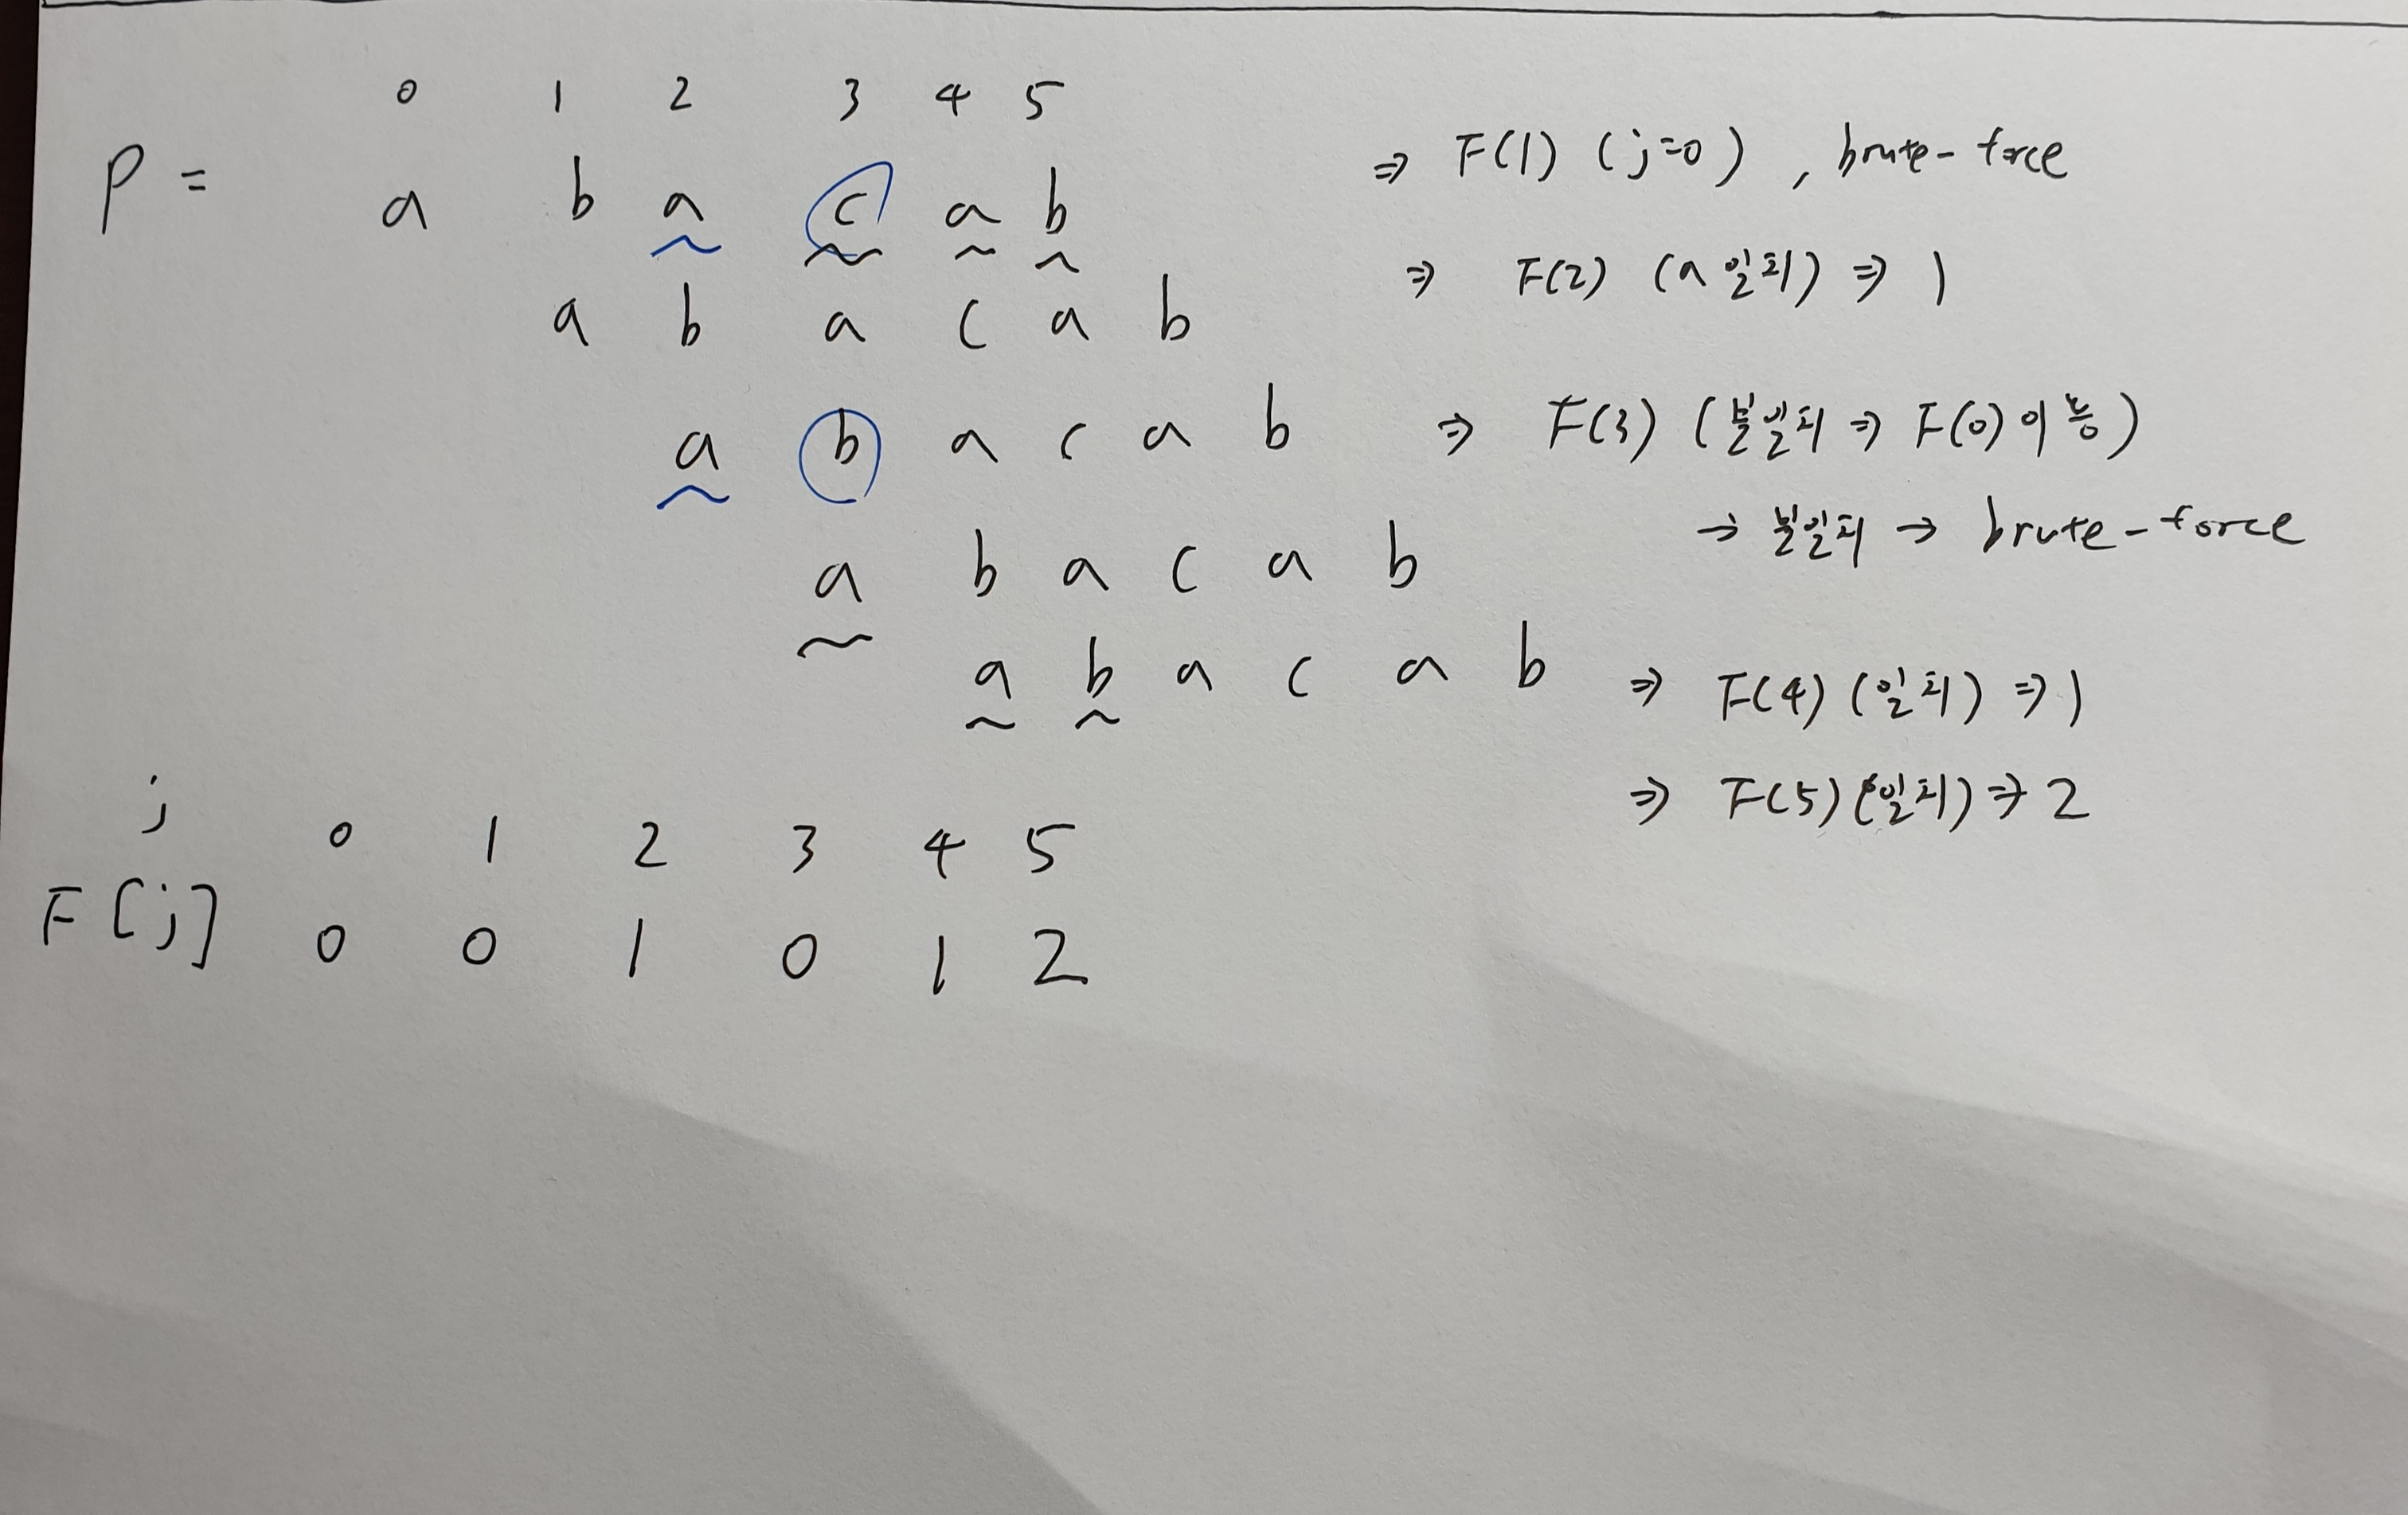 0 1 2 3 4 5
P = a b a c a b ⇒ F(1) (j=0) , brute-force
a b a c a b ⇒ F(2) (a 일치) ⇒ 1
a b a c a b ⇒ F(3) (불일치 ⇒ F(0) 이동)
→ 불일치 → brute-force
a b a c a b
a b a c a b ⇒ F(4) (일치) ⇒ 1
⇒ F(5) (일치) ⇒ 2
j 0 1 2 3 4 5
F[j] 0 0 1 0 1 2